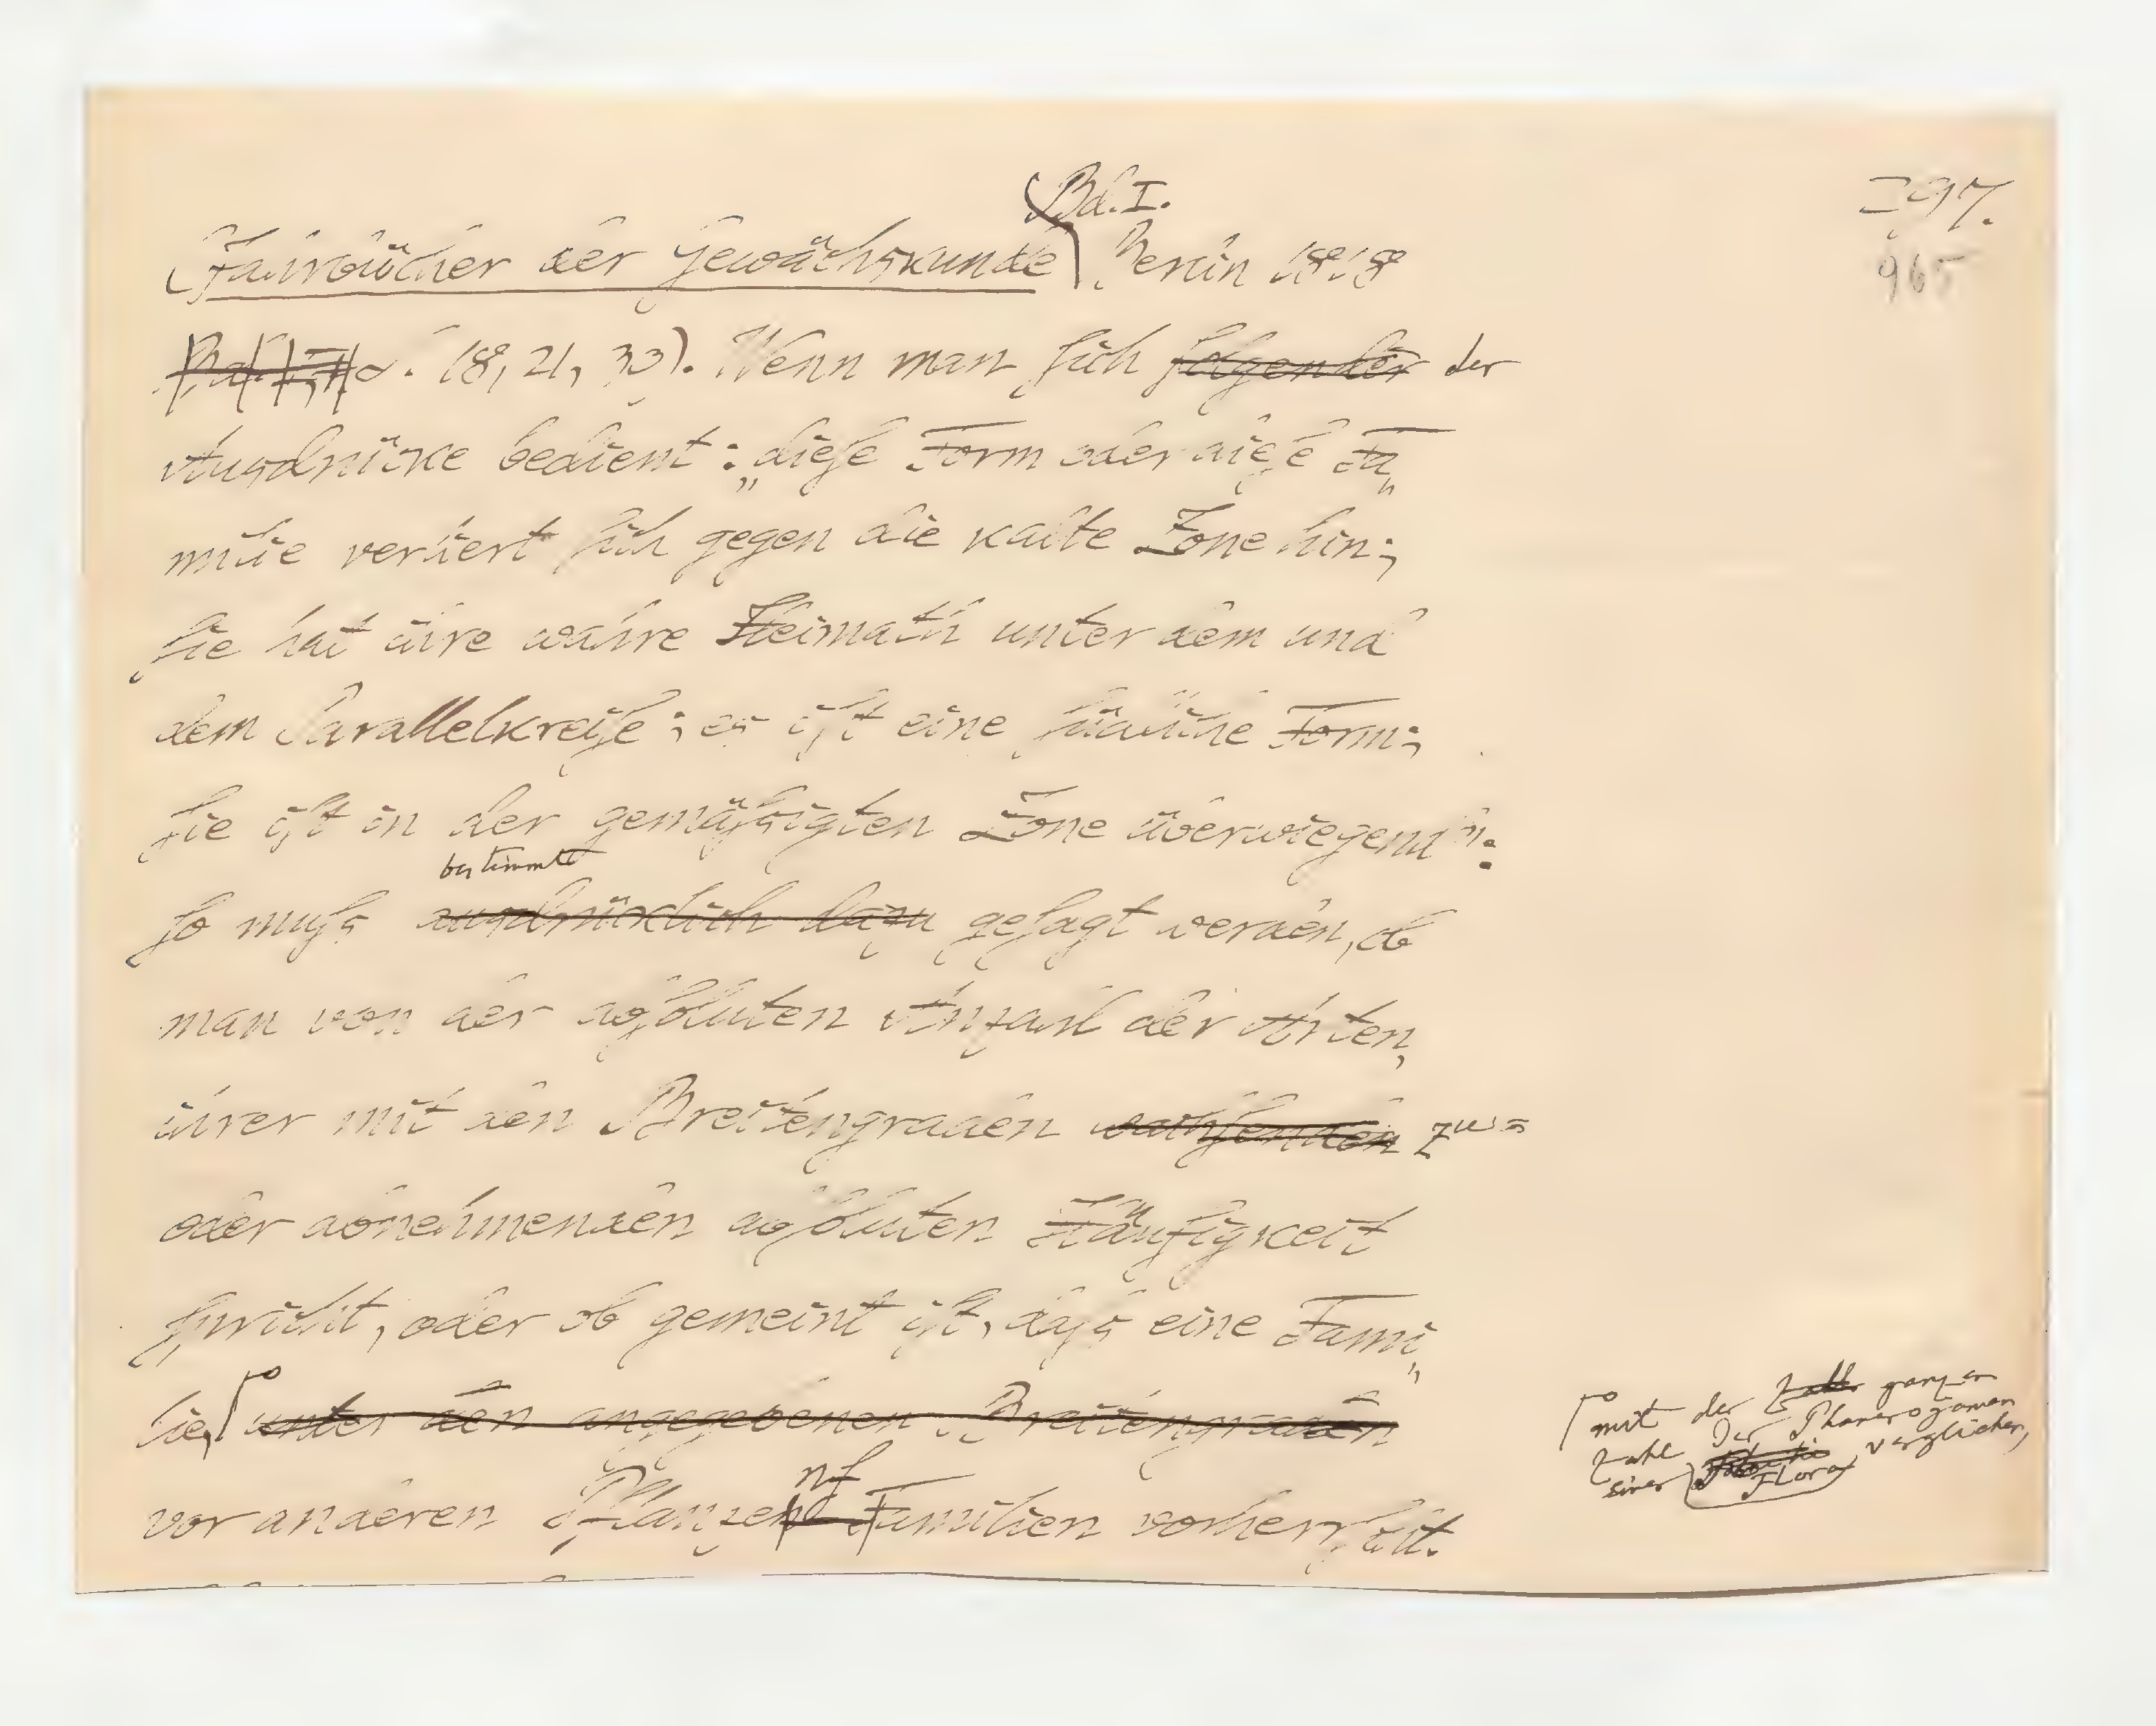 297.
965
Bd. I.
(Jahrbücher der Gewächskunde) Berlin 1818
Bd. I, S. 18, 21, 30). Wenn man ſich folgender der
Ausdrücke bedient: „dieſe Form oder dieſe Fa„
milie verliert ſich gegen die kalte Zone hin;
ſie hat ihre wahre Heimath unter dem und
dem Parallelkreiſe; es iſt eine ſüdliche Form;
ſie iſt in der gemäſsigten Zone überwiegend":
bestimmt
ſo muſs ausdrücklich dazu geſagt werden, ob
man von der abſoluten Anzahl der Arten,
ihrer mit den Breitengraden wachſenden zu=
oder abnehmenden abſoluten Häufigkeit
ſpricht, oder ob gemeint iſt, daſs eine Fami„
lie, unter den angegebenen Breitengraden
mit der Zahl ganzen
Zahl der Phanerogamen
einer Flora verglichen,
vor anderen Pflanzen Familien vorherrſcht.